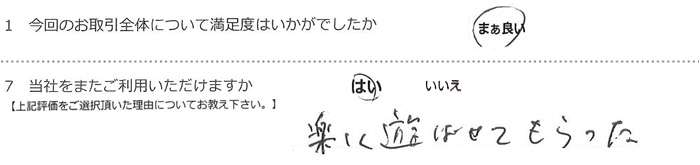 1 今回のお取引全体について満足度はいかがでしたか まあ良い
7 当社をまたご利用いただけますか はい いいえ
【上記評価をご選択頂いた理由についてお教え下さい。】
楽しく遊ばせてもらった